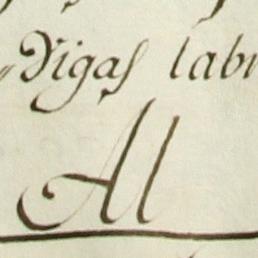 Vigas labr
Al